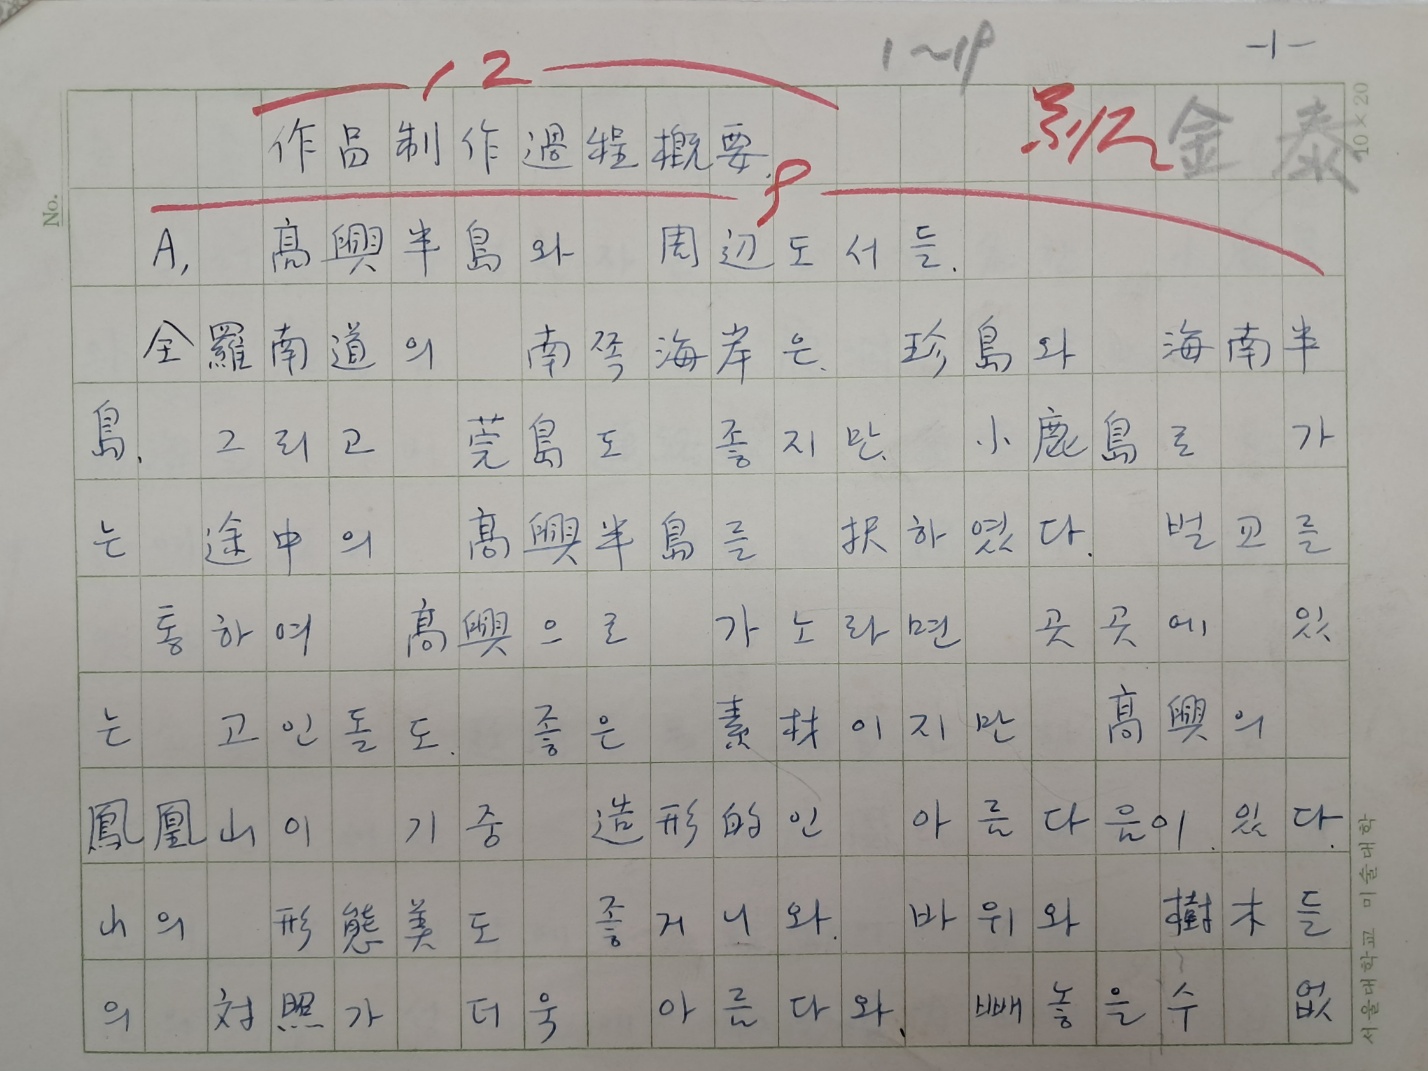 1~19
-1-
12
金泰
10×20
No.
作品制作過程概要.
9
A, 高興半島와 周辺도서들.
全羅南道의 南쪽海岸은. 珍島와 海南半
島. 그리고 莞島도 좋지만. 小鹿島로 가
는 途中의 高興半島를 択하였다. 벌교를
통하여 高興으로 가노라면 곳곳에 있
는 고인돌도. 좋은 素材이지만 高興의
鳳凰山이 기중 造形的인 아름다음이. 있다.
山의 形態美도 좋거니와. 바위와 樹木들
의 対照가 더욱 아름다와. 빼놓을수 없
서울대학교 미술대학